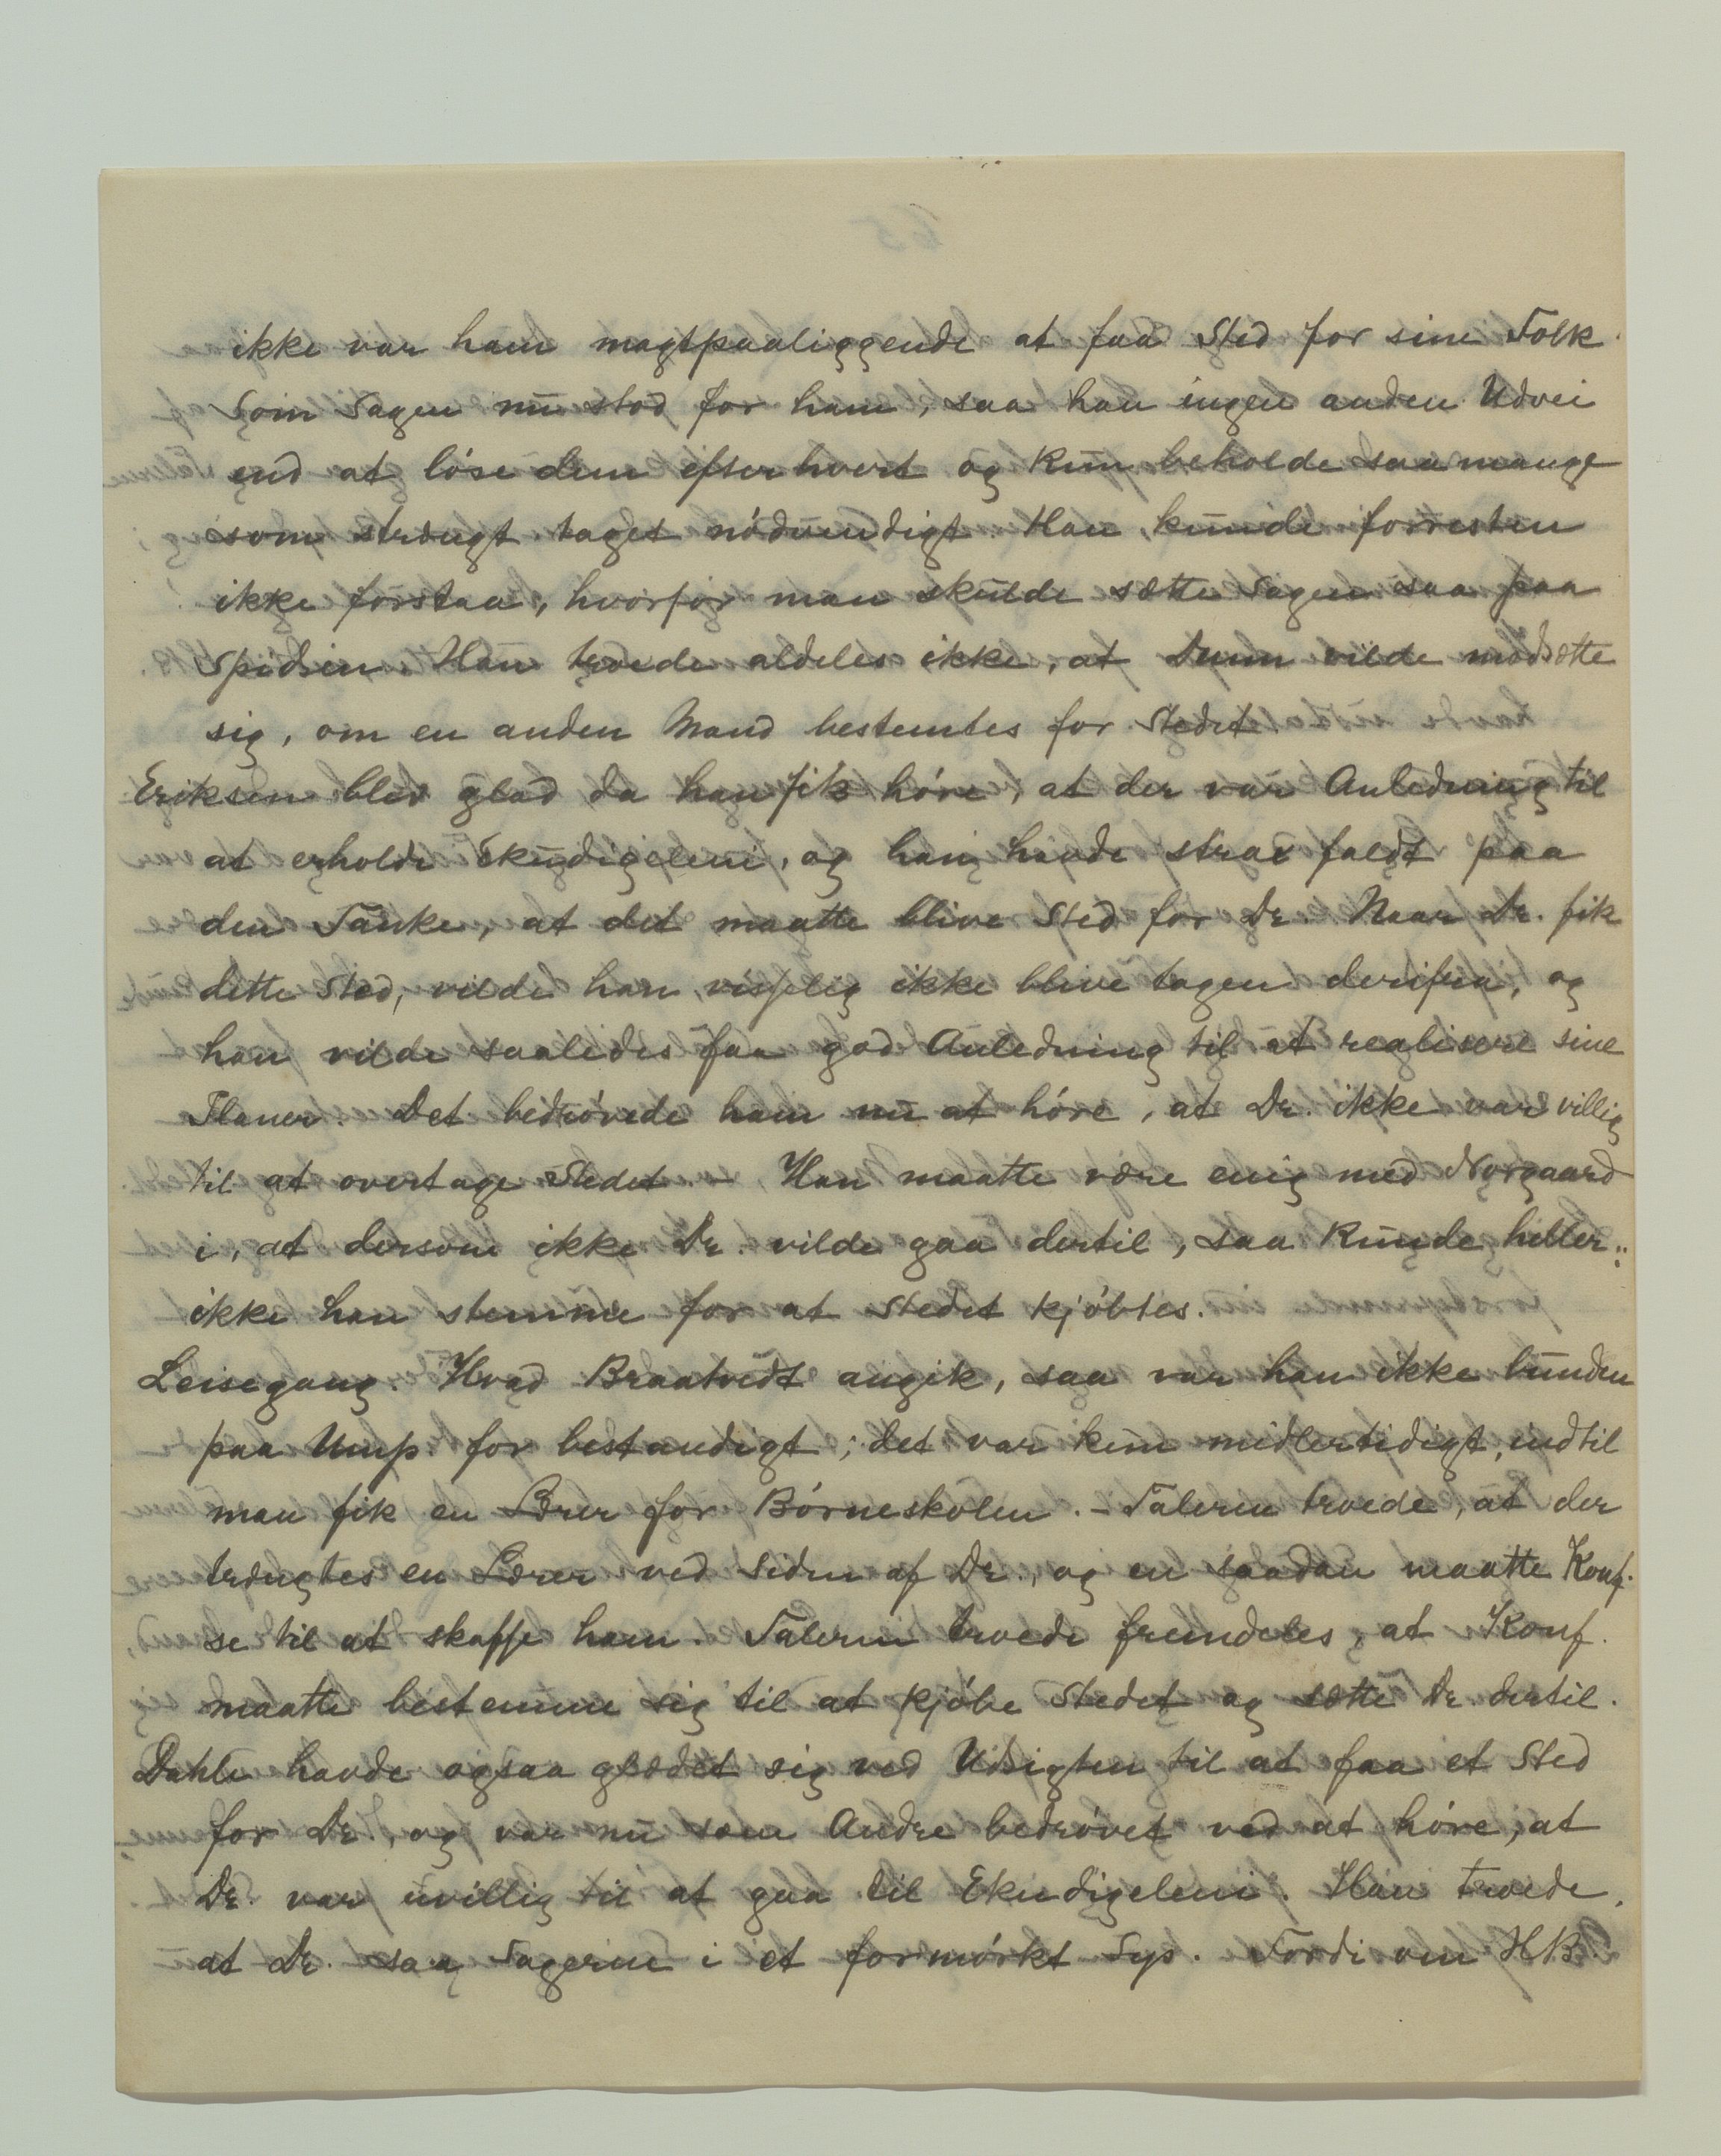 ikke var ham magtpaaliggende at faa Sted for sine Folk.
Som Sagen nu stod for ham, saa han ingen anden Udvei
end at löse dem efterhvert og kun beholde saa mange
som strængt taget nödvendigt. Han kunde forresten
ikke forstaa, hvorfor man skulde sætte Sagen saa paa
Spidsen. Han troede aldeles ikke, at Dunn vilde modsætte
sig, om en anden Mand bestemtes for Stedet.
Eriksen blev glad da han fik höre, at der var Anledning til
at erholde Ekudigeleni, og han havde strax faldt paa
den Tanke, at det maatte blive Sted for Dr. Naar Dr. fik
dette Sted, vilde han visselig ikke blive tagen derifra, og
han vilde saaledes faa god Anledning til at realisere sine
Planer. Det bedrövede ham nu at höre, at Dr. ikke var villig
til at overtage Stedet. – Han maatte være enig med Norgaard
i, at dersom ikke Dr. vilde gaa dertil, saa kunde heller
ikke han stemme for at Stedet kjöbtes.
Leisegang. Hvad Braatvedt angik, saa var han ikke bunden
paa Ump. for bestandigt; det var kun midlertidigt, indtil
man fik en Lærer for Börneskolen. – Taleren troede, at der
trængtes en Lærer ved Siden af Dr., og en saadan maatte Konf.
se til at skaffe ham. Taleren troede fremdeles, at Konf.
maatte bestemme sig til at kjöbe Stedet og sætte Dr. dertil.
Dahle havde ogsaa glædet sig ved Udsigten til at faa et Sted
for Dr., og var nu som Andre bedrövet ved at höre, at
Dr. var uvillig til at gaa til Ekudigeleni. Han troede,
at Dr. saa Sagerne i et formörkt Lys. Fordi om HB.
65